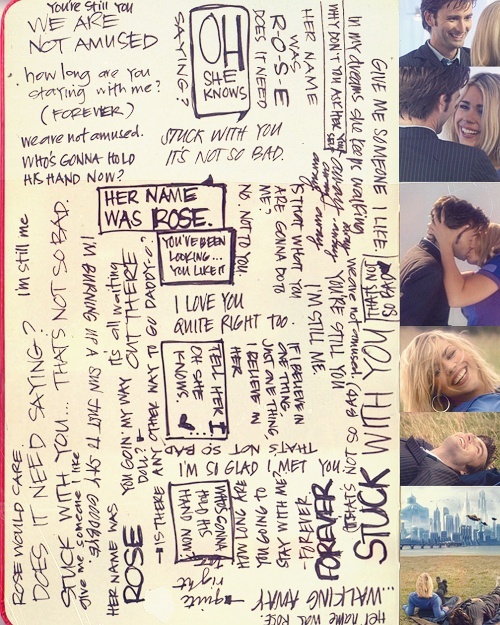 You're Still You
WE ARE
NOT AMUSED
how long are you
staying with me?
(FOREVER)
we are not amused.
WHO'S GONNA HOLD
HIS HAND NOW?
SAYING?
OH
SHE
KNOWS
DOES IT NEED
R-O-S-E
WAS
HER NAME
STUCK WITH YOU
IT'S NOT SO BAD.
WHY DON'T YOU ASK HER
In my dreams she keeps walking
away
GIVE ME SOMEONE I LIKE.
HER NAME
WAS ROSE.
YOU'VE BEEN
LOOKING...
YOU LIKE IT
NO, NOT TO YOU
ME?
ARE GONNA DO TO
IS THAT WHAT YOU
I'M STILL ME
YOU'RE STILL YOU
we are not amused
THAT'S NOT
SO BAD
I LOVE YOU
QUITE RIGHT TOO.
I'm still me
ROSE WOULD CARE.
DOES IT NEED SAYING?
STUCK WITH YOU... THAT'S NOT SO BAD.
give me someone I like
I'M BURNING UP A SUN JUST TO SAY GOODBYE.
HER NAME WAS
ROSE
it's all waiting
OUT THERE
YOU GOIN' MY WAY
DOLL?
IS THERE ANY OTHER WAY TO GO DADDY-O?
TELL HER I
OH SHE
KNOWS.
HER
I BELIEVE IN
JUST ONE THING,
ONE THING,
IF I BELIEVE IN
THAT'S NOT SO BAD
I'M SO GLAD I MET YOU
WHO'S GONNA
HOLD HIS
HAND NOW?
HOW LONG ARE
YOU GOING TO
STAY WITH ME?
-FOREVER.
FOREVER
STUCK WITH YOU
quite right
...WALKING AWAY
Her name was ROSE.